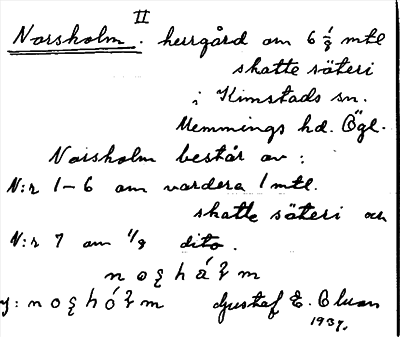 II
Norsholm. herrgård om 6 1/8 mtl
skatte säteri
i Kimstads sn.
Memmings hd. Ögl.
Norsholm består av:
N:r 1–6 om vardera 1 mtl.
skatte säteri och
N:r 7 om 1/8 dito.
Gustaf E. Olson
1937.